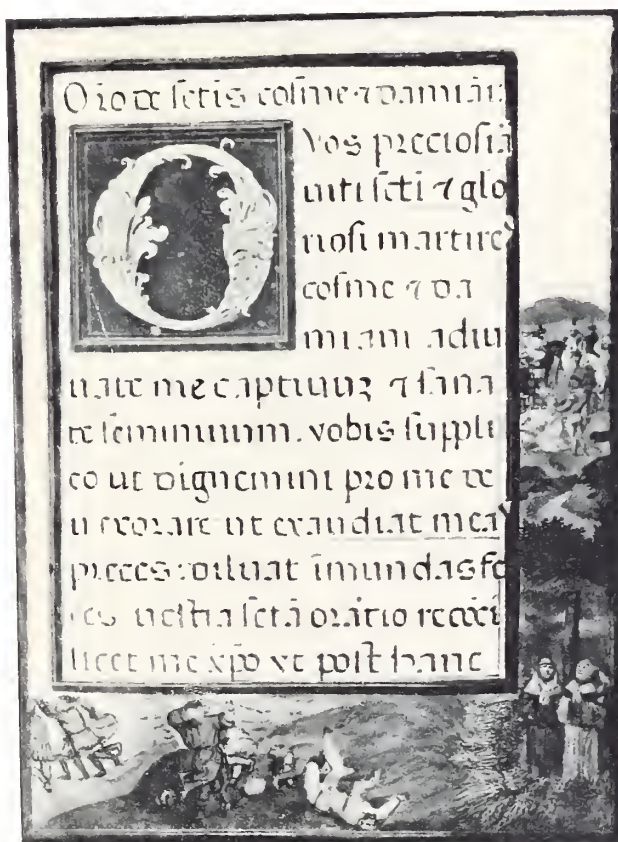 Oro de sctis cosme ⁊ damiāi:
O vos preciosiā
miti scti ⁊ glo
riosi martires
cosme ⁊ da
miani adiu
uate me captiuuʒ ⁊ sana
te seminiuum. vobis suppli
co ut dignemini pro me de
u exorare ut exaudiat meas
preces: diluat īmundas
uestra sctā oratio
liceet me xp̄o vt post hanc